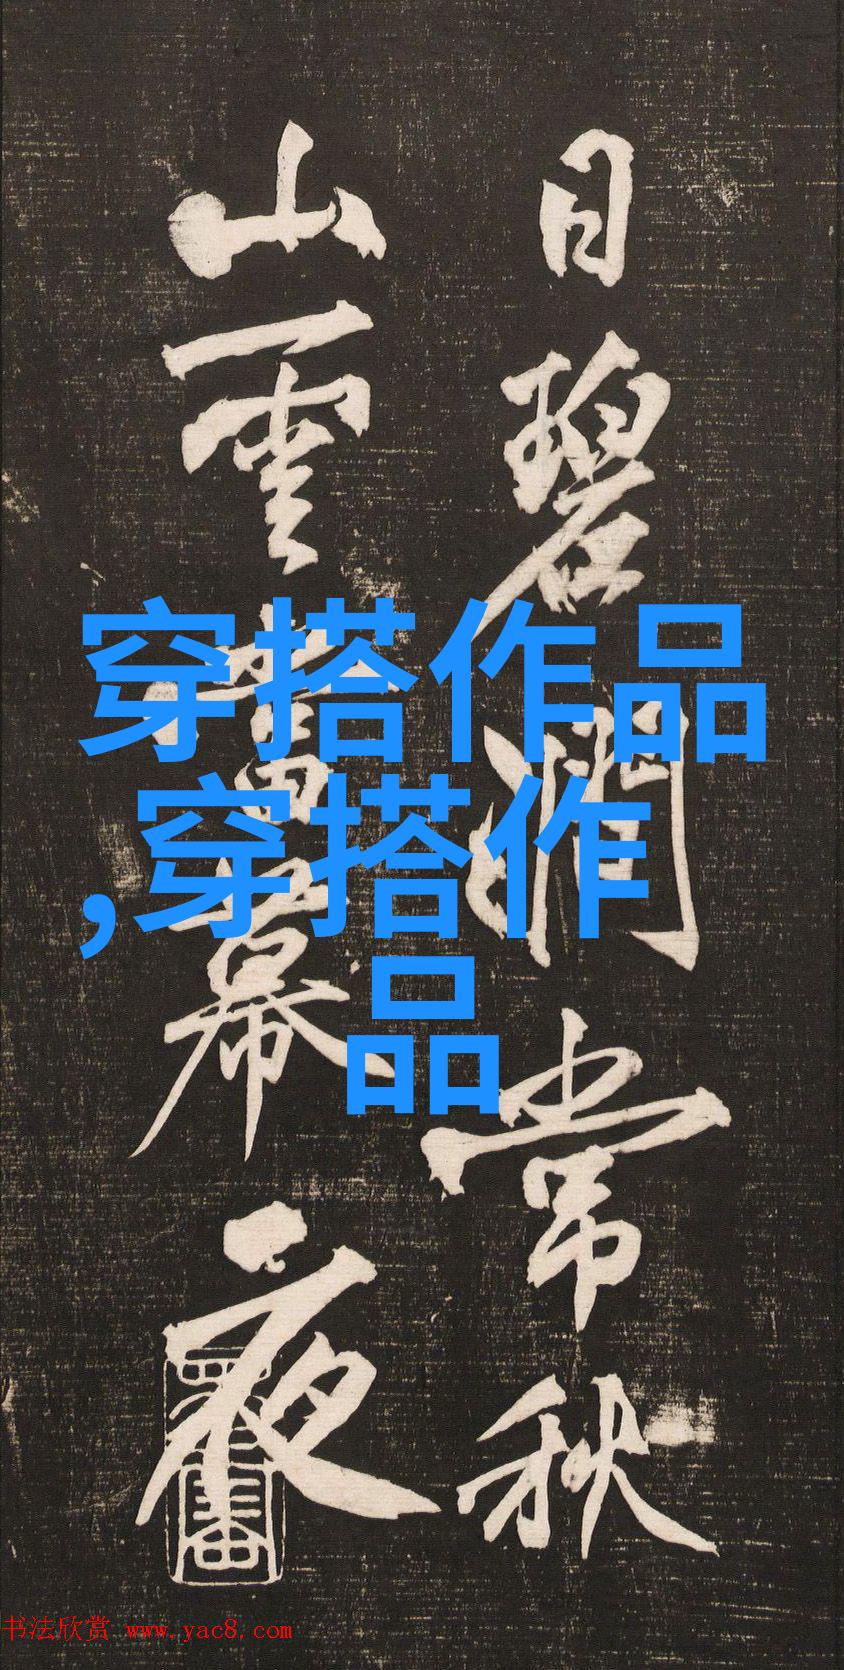 日碧常秋
山雲當幕夜
穿搭作品
,穿搭作
品
书法欣赏 www.yac8.com